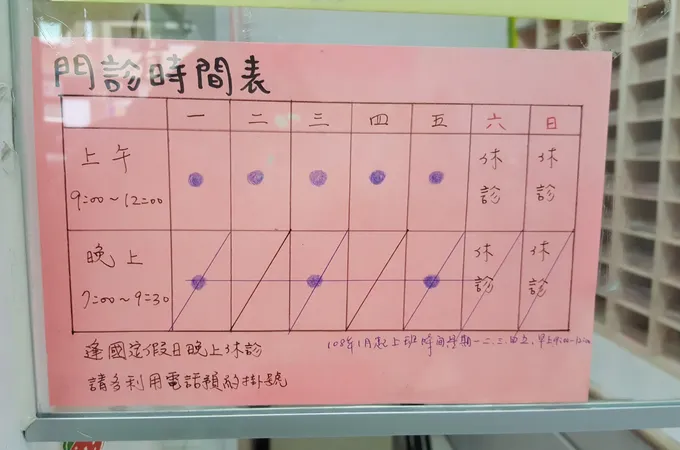 門診時間表
一 二 三 四 五 六 日
上午 休診 休診
9:00~12:00
晚上 休診 休診
7:00~9:30
逢國定假日晚上休診
108年1月起上班時間星期一.二.三.四.五.早上9:00-12:00
請多利用電話預約掛號